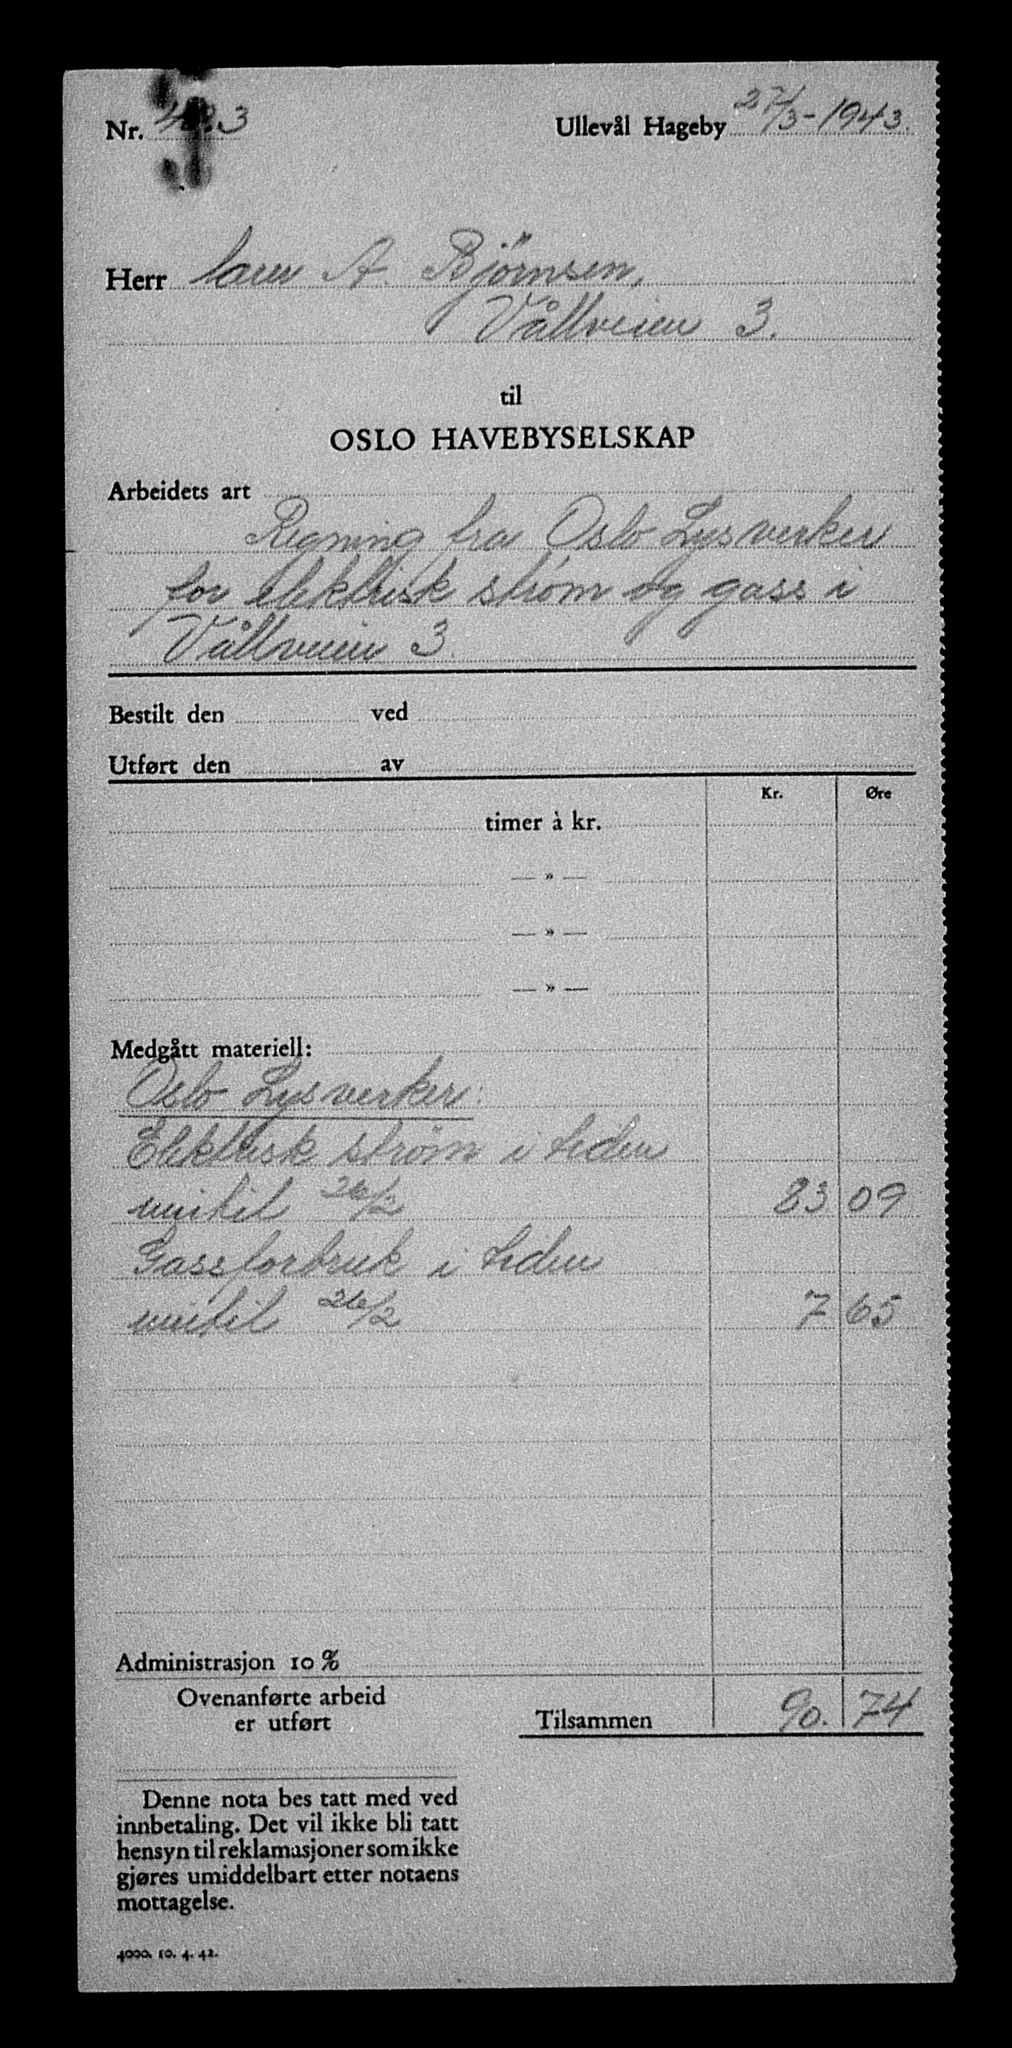 Nr. 3
Ullevål Hageby 27/3-1943.
Herr A. Bjørnsen,
Vållveien 3.
til
OSLO HAVEBYSELSKAP
Arbeidets art
Regning fra Oslo Lysverker
for elektrisk strøm og gass i
Vållveien 3.
Bestilt den ved
Utført den av
Kr. Øre
timer à kr.
— » —
— » —
— » —
Medgått materiell:
Oslo Lysverker:
Elektrisk strøm i tiden
inntil 26/2 83 09
Gassforbruk i tiden
inntil 26/2 7 65
Administrasjon 10 %
Ovenanførte arbeid
er utført
Tilsammen 90. 74
Denne nota bes tatt med ved
innbetaling. Det vil ikke bli tatt
hensyn til reklamasjoner som ikke
gjøres umiddelbart etter notaens
mottagelse.
4000. 10. 4. 42.